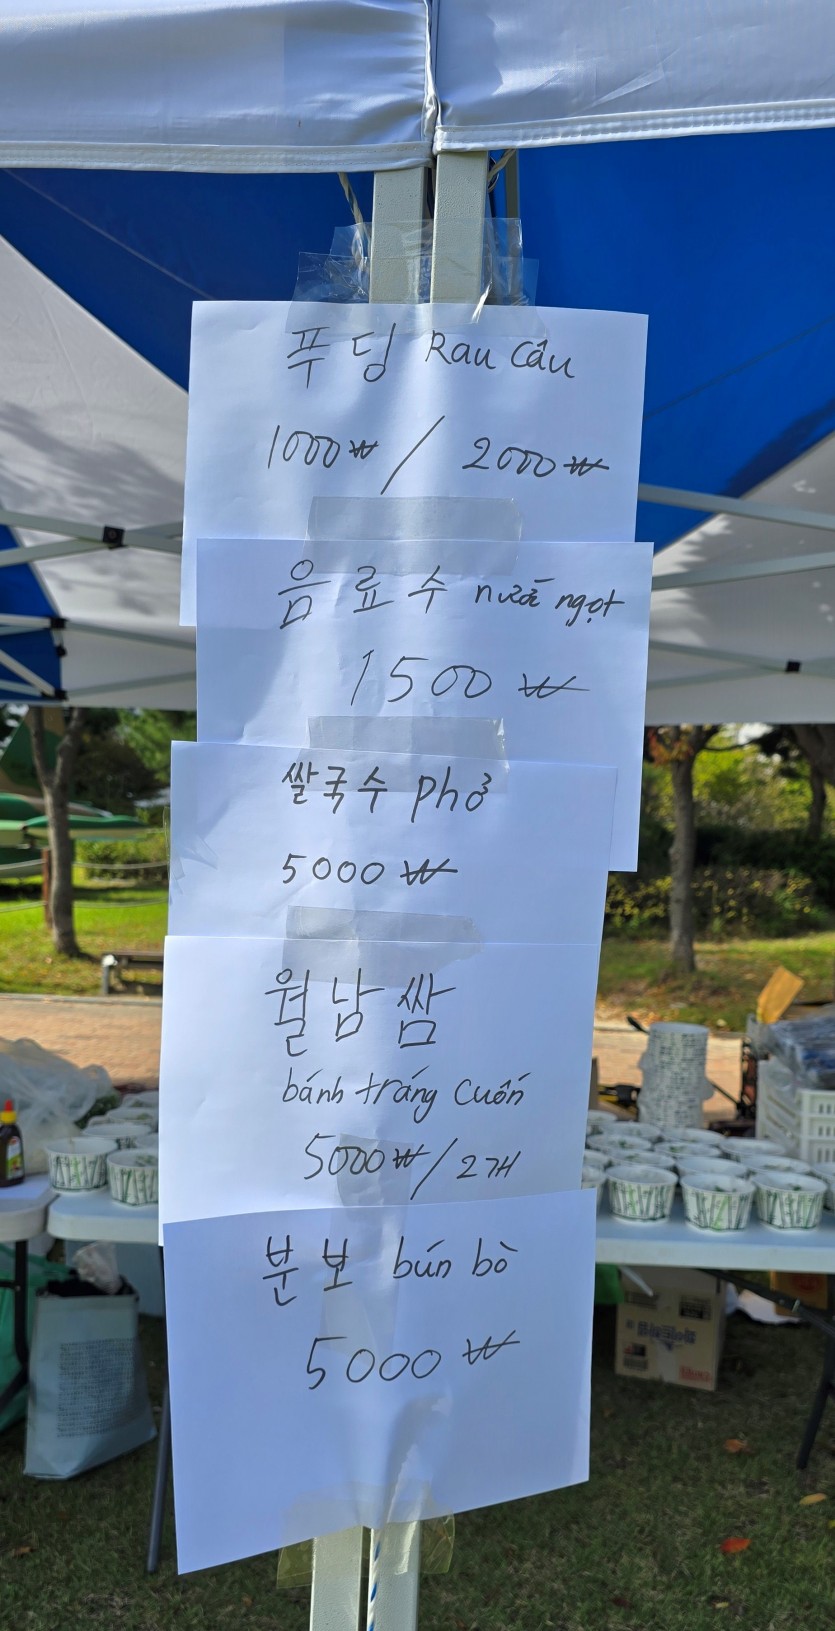 푸딩 Rau Câu
1000₩ / 2000₩
음료수 nước ngọt
1500 ₩
쌀국수 phở
5000 ₩
월남쌈
bánh tráng cuốn
5000₩ / 2개
분보 bún bò
5000 ₩